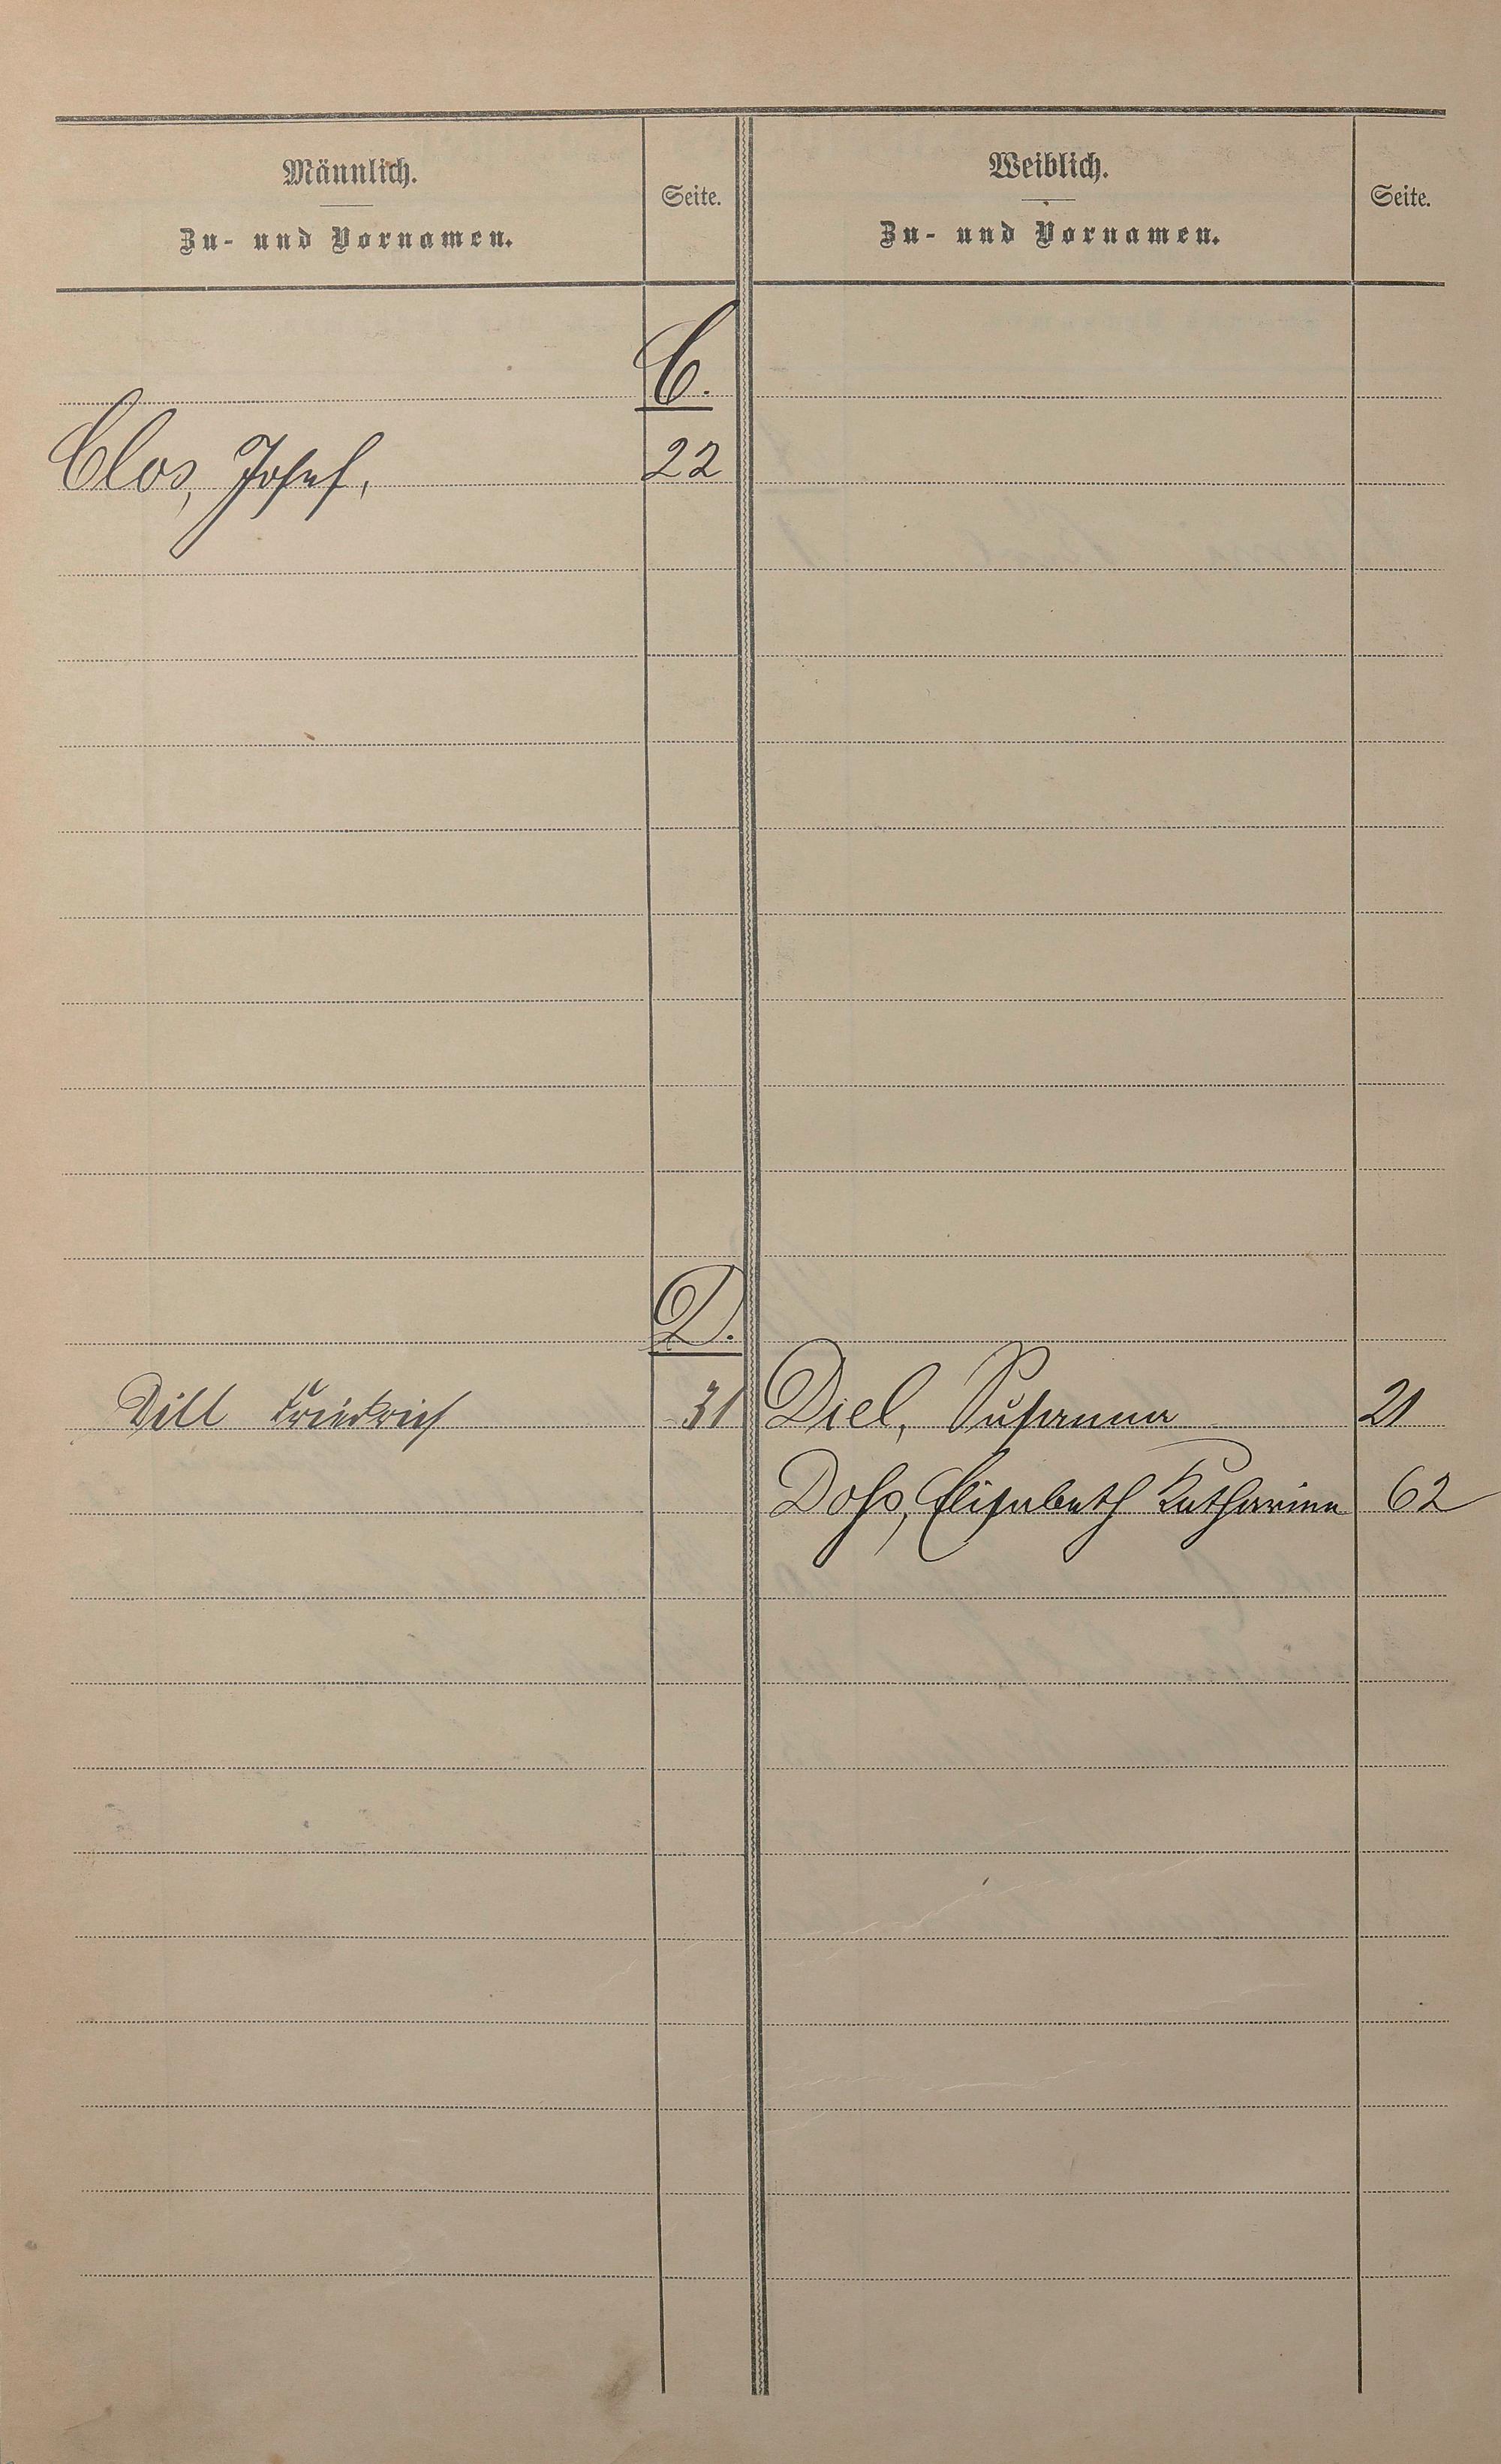 Männlich.
Zu- und Vornamen.
Seite.
Weiblich.
Zu- und Vornamen.
Seite.
C.
Clos, Josef, 22
D.
Dill Friedrich 31 Diel, Susanna 21
Doß, Elisabeth Katharina 62